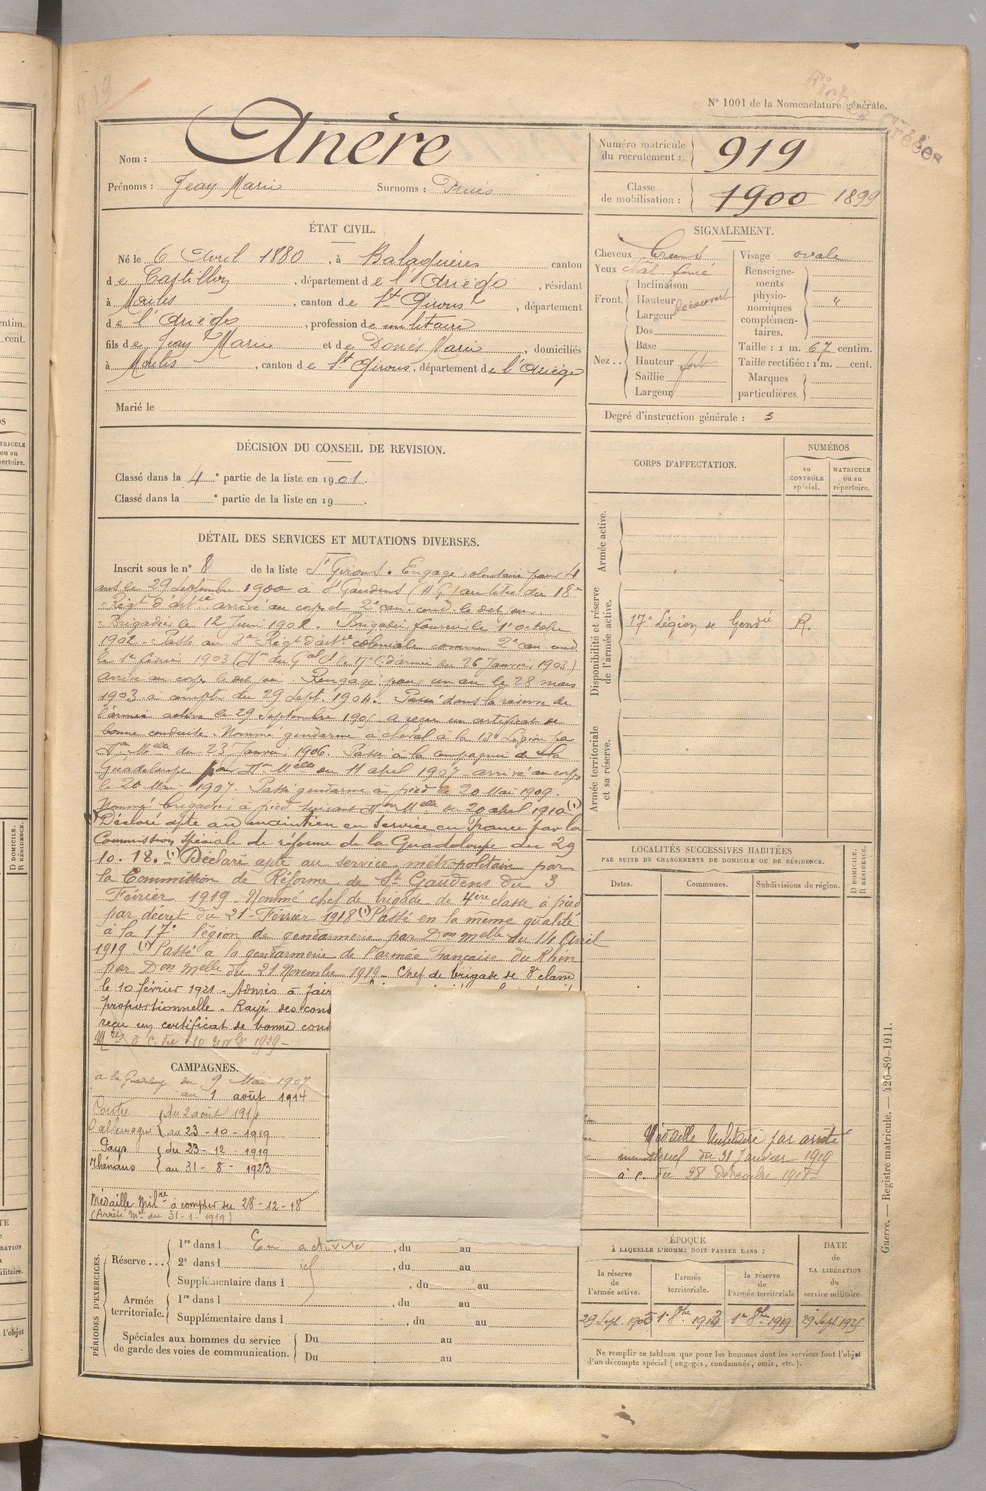 N° 1001 de la Nomenclature générale.
Fiches Créées
919
Nom : Anère
Prénoms : Jean Marie Surnoms :
Numéro matricule du recrutement : 919
Classe de mobilisation : 1900 1899
ÉTAT CIVIL.
Né le 6 Avril 1880, à Balaguères canton
de Castillon, département de l'Ariège, résidant
à Moulis, canton de St Girons, département
de l'Ariège, profession de militaire
fils de Jean Marie et de Donès Marie, domiciliés
à Moulis, canton de St Girons, département de l'Ariège
Marié le
SIGNALEMENT.
Cheveux
Yeux chat. foncé
Front. Inclinaison
Hauteur découvert
Largeur
Dos
Nez.. Base
Hauteur fort
Saillie
Largeur
Visage ovale
Renseignements physionomiques complémentaires. "
Taille : 1 m. 67 centim.
Taille rectifiée : 1 m. cent.
Marques particulières.
Degré d'instruction générale : 3
DÉCISION DU CONSEIL DE REVISION.
Classé dans la 4e partie de la liste en 1901.
Classé dans la e partie de la liste en 19
CORPS D'AFFECTATION.
NUMÉROS
au CONTRÔLE spécial.
MATRICULE ou au répertoire.
Armée active.
Disponibilité et réserve de l'armée active.
17e Légion de Gendie R.
Armée territoriale et sa réserve.
DÉTAIL DES SERVICES ET MUTATIONS DIVERSES.
Inscrit sous le n° 8 de la liste St Girons. Engagé volontaire pour 4
ans le 29 septembre 1900 à St Gaudens (H.G.) au titre du 18e
Régt d'artie arrivé au corps et 2e can. cond. le dit jour.
Brigadier le 12 Juin 1902. Brigadier fourrier le 1er octobre
1902. Passé au 3e Régt d'artie coloniale comme 2e can. cond.
le 1er février 1903 (du 26 Janvier 1903)
arrivé au corps le dit jour. Rengagé pour un an le 28 mars
1903 à compter du 29 sept. 1904. Passé dans la réserve de
l'armée active le 29 septembre 1905 a reçu un certificat de
bonne conduite. Nommé gendarme à cheval à la 13e Légion par
Don Melle du 23 Janvier 1906. Passé à la compagnie de la
Guadeloupe par Don Melle du 11 avril 1907 arrivé au corps
le 20 Mai 1907. Passé gendarme à pied le 20 Mai 1909.
Nommé brigadier à pied suivant Don Melle du 20 avril 1910 (1)
Déclaré apte au maintien en service en France par la
Commission spéciale de réforme de la Guadeloupe du 29
10. 18. (1) Déclaré apte au service métropolitain par
la Commission de Réforme de St Gaudens du 3
Février 1919 - Nommé chef de brigade de 4ère classe à pied
par décret du 21 Février 1918 (1) Passé en la même qualité
à la 17e légion de gendarmerie par Don Melle du 14 Avril
1919 (1) Passé à la gendarmerie de l'armée française du Rhin
par Don Melle du 21 Novembre 1919 - Chef de brigade de 3e classe
le 10 février 1921 - Admis à faire
proportionnelle - Rayé des cont
reçu un certificat de bonne cond
CAMPAGNES.
a la Guadeloupe du 9 Mai 1907
au 1 août 1914
Contre l'allemagne du 2 août 1914
au 23-10-1919
Pays Rhénans du 23-12-1919
au 31-8-1923
Médaille Milre à compter du 28-12-18
(Arrêté Mel du 31-1-1919)
LOCALITÉS SUCCESSIVES HABITÉES
PAR SUITE DE CHANGEMENTS DE DOMICILE OU DE RÉSIDENCE.
Dates. Communes. Subdivisions de région. D DOMICILE. R RÉSIDENCE.
Médaille Militaire par arrêté
ministeriel du 31 Janvier 1919
à c. du 28 décembre 1918
PÉRIODES D'EXERCICES.
Réserve... 1re dans l En activité, du au
2e dans l id, du au
Supplémentaire dans l, du au
Armée territoriale. 1re dans l, du au
Supplémentaire dans l, du au
Spéciales aux hommes du service de garde des voies de communication. Du au
Du au
ÉPOQUE
À LAQUELLE L'HOMME DOIT PASSER DANS :
la réserve de l'armée active. l'armée territoriale. la réserve de l'armée territoriale
DATE DE LA LIBÉRATION du service militaire.
29 Sept. 1905 1er 8bre 1913 1er 8bre 1919 29 Sept 1925
Ne remplir ce tableau que pour les hommes dont les services font l'objet
d'un décompte spécial (engagés, condamnés, omis, etc.).
Guerre. — Registre matricule. — 426-89-1911.